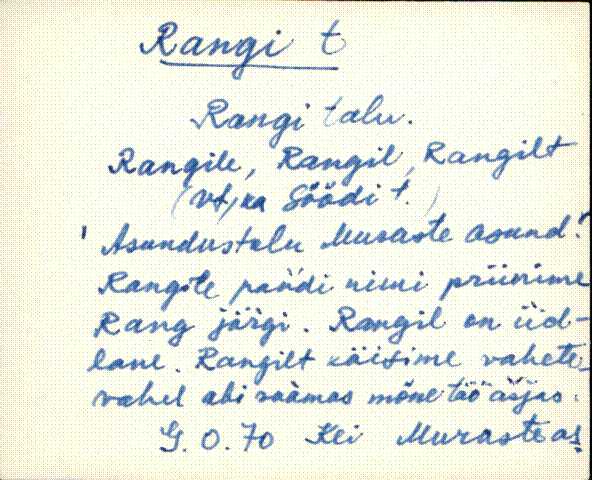 Rangi t
Rangi talu.
Rangile, Rangil, Rangilt
(vt, ka Söödi t.)
'Asundustalu Muraste asund.'
Rangile pandi nimi priinime
Rang järgi. Rangil on üid-
lane. Rangilt käisime vahete-
vahel abi saamas mõne töö asjas.
G. O. 70 Kei Muraste as.